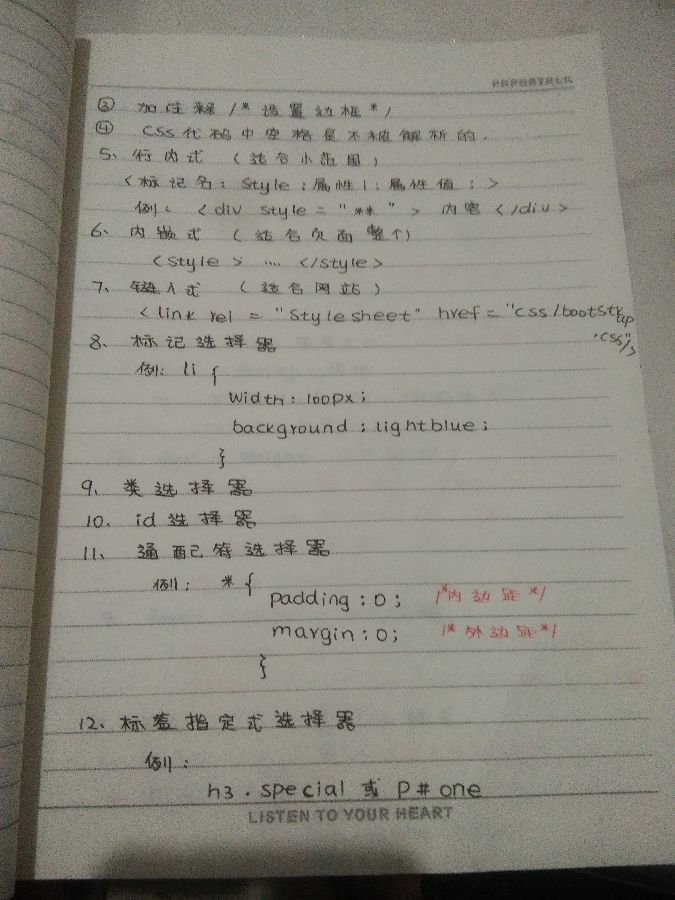 PAPERTREK
③ 加注释 /* 设置边框 */
④ CSS 代码中空格是不被解析的.
5、行内式 (适合小范围)
<标记名: Style:属性1:属性值;>
例: <div style = "**" > 内容 </div>
6、内嵌式 (适合页面整个)
<style> .... </style>
7、链入式 (适合网站)
<link rel = "Stylesheet" href = "css/bootstrap
.css"/>
8、标记选择器
例: li {
width: 100px;
background: lightblue;
}
9、类选择器
10、id 选择器
11、通配符选择器
例: * {
padding: 0; /*内边距*/
margin: 0; /*外边距*/
}
12、标签指定式选择器
例:
h3.special 或 P#one
LISTEN TO YOUR HEART